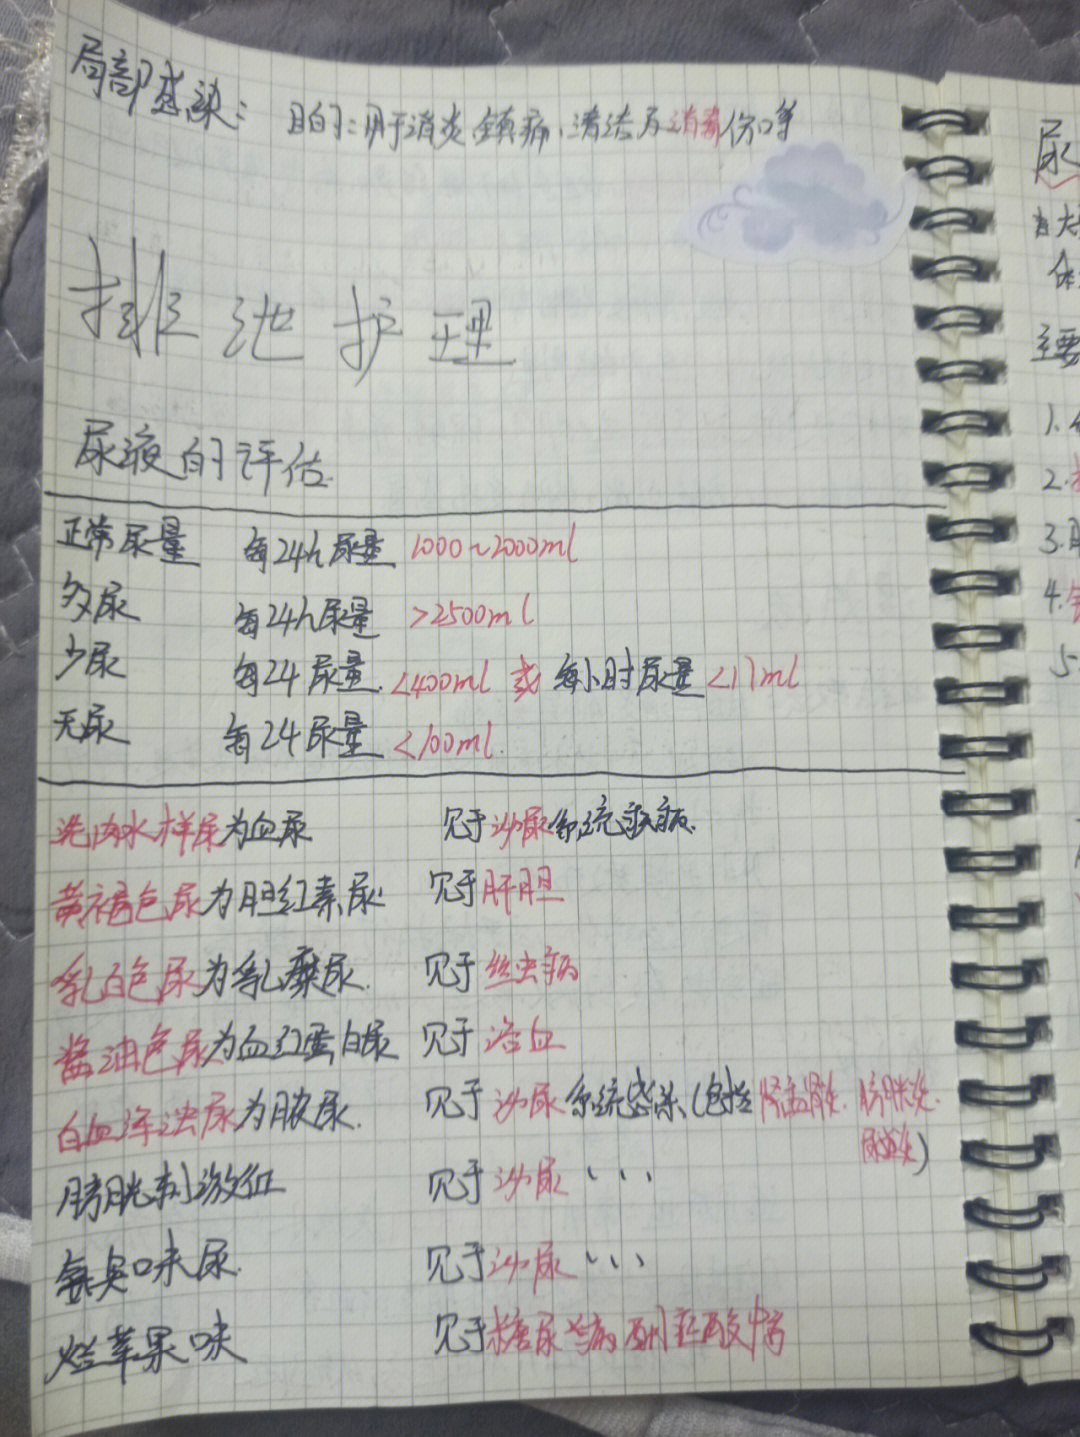 局部感染: 目的:用于消炎、镇痛、清洁及消毒伤口等
排泄护理
尿液的评估.
正常尿量 每24h尿量 1000~2000ml
多尿 每24h尿量 >2500ml
少尿 每24尿量 <400ml 或 每小时尿量 <17ml
无尿 每24尿量 <100ml.
洗肉水样尿为血尿 见于泌尿系统疾病.
黄褐色尿为胆红素尿 见于肝胆
乳白色尿为乳糜尿. 见于丝虫病
酱油色尿为血红蛋白尿 见于溶血
白血浑浊尿为脓尿. 见于泌尿系统感染(包括肾盂肾炎.膀胱炎.
尿道炎)
膀胱刺激征 见于泌尿...
氨臭味尿. 见于泌尿...
烂苹果味 见于糖尿病酮症酸中毒
尿
主要
1.
2.
3.
4.
5